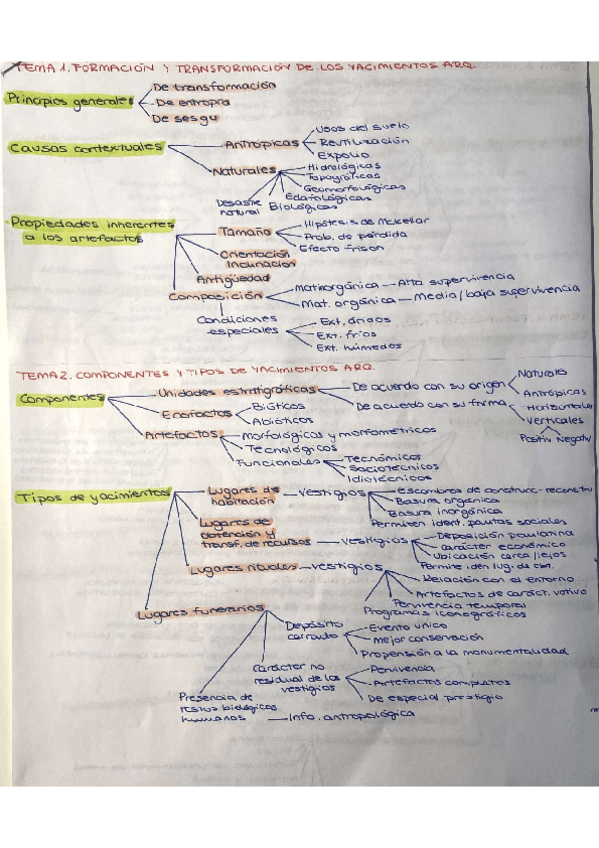 TEMA 1. FORMACIÓN Y TRANSFORMACIÓN DE LOS YACIMIENTOS ARQ.
Principios generales
De transformación
De entropía
De sesgo
Causas contextuales
Antrópicas
Usos del suelo
Reutilización
Expolio
Naturales
Hidrológicas
Topográficas
Geomorfológicas
Edafológicas
Biológicas
Desastre
natural
Propiedades inherentes
a los artefactos
Tamaño
Hipótesis de McKellar
Prob. de pérdida
Efecto frison
Orientación
Inclinación
Antigüedad
Composición
Mat. inorgánica — Alta supervivencia
Mat. orgánica — Media/baja supervivencia
Condiciones
especiales
Ext. áridos
Ext. fríos
Ext. húmedos
TEMA 2. COMPONENTES Y TIPOS DE YACIMIENTOS ARQ.
Componentes
Unidades estratigráficas
De acuerdo con su origen
Naturales
Antrópicas
De acuerdo con su forma
Horizontales
Verticales
Positiv Negativ
Ecofactos
Bióticos
Abióticos
Artefactos
Morfológicos y morfométricos
Tecnológicos
Funcionales
Tecnómicos
Sociotécnicos
Idiotécnicos
Tipos de yacimientos
Lugares de
habitación
vestigios
Escombros de construcc-reconstru
Basura orgánica
Basura inorgánica
Permiten ident. pautas sociales
Lugares de
obtención y
transf. de recursos
vestigios
Deposición paulatina
Carácter económico
Ubicación cerca/lejos
Permite iden lug. de obt.
Lugares rituales
vestigios
Relación con el entorno
Artefactos de caráct. votivo
Pervivencia temporal
Programas iconográficos
Lugares funerarios
Depósito
cerrado
Evento único
Mejor conservación
Propensión a la monumentalidad
Carácter no
residual de los
vestigios
Pervivencia
Artefactos completos
De especial prestigio
Presencia de
restos biológicos
humanos — Info. antropológica